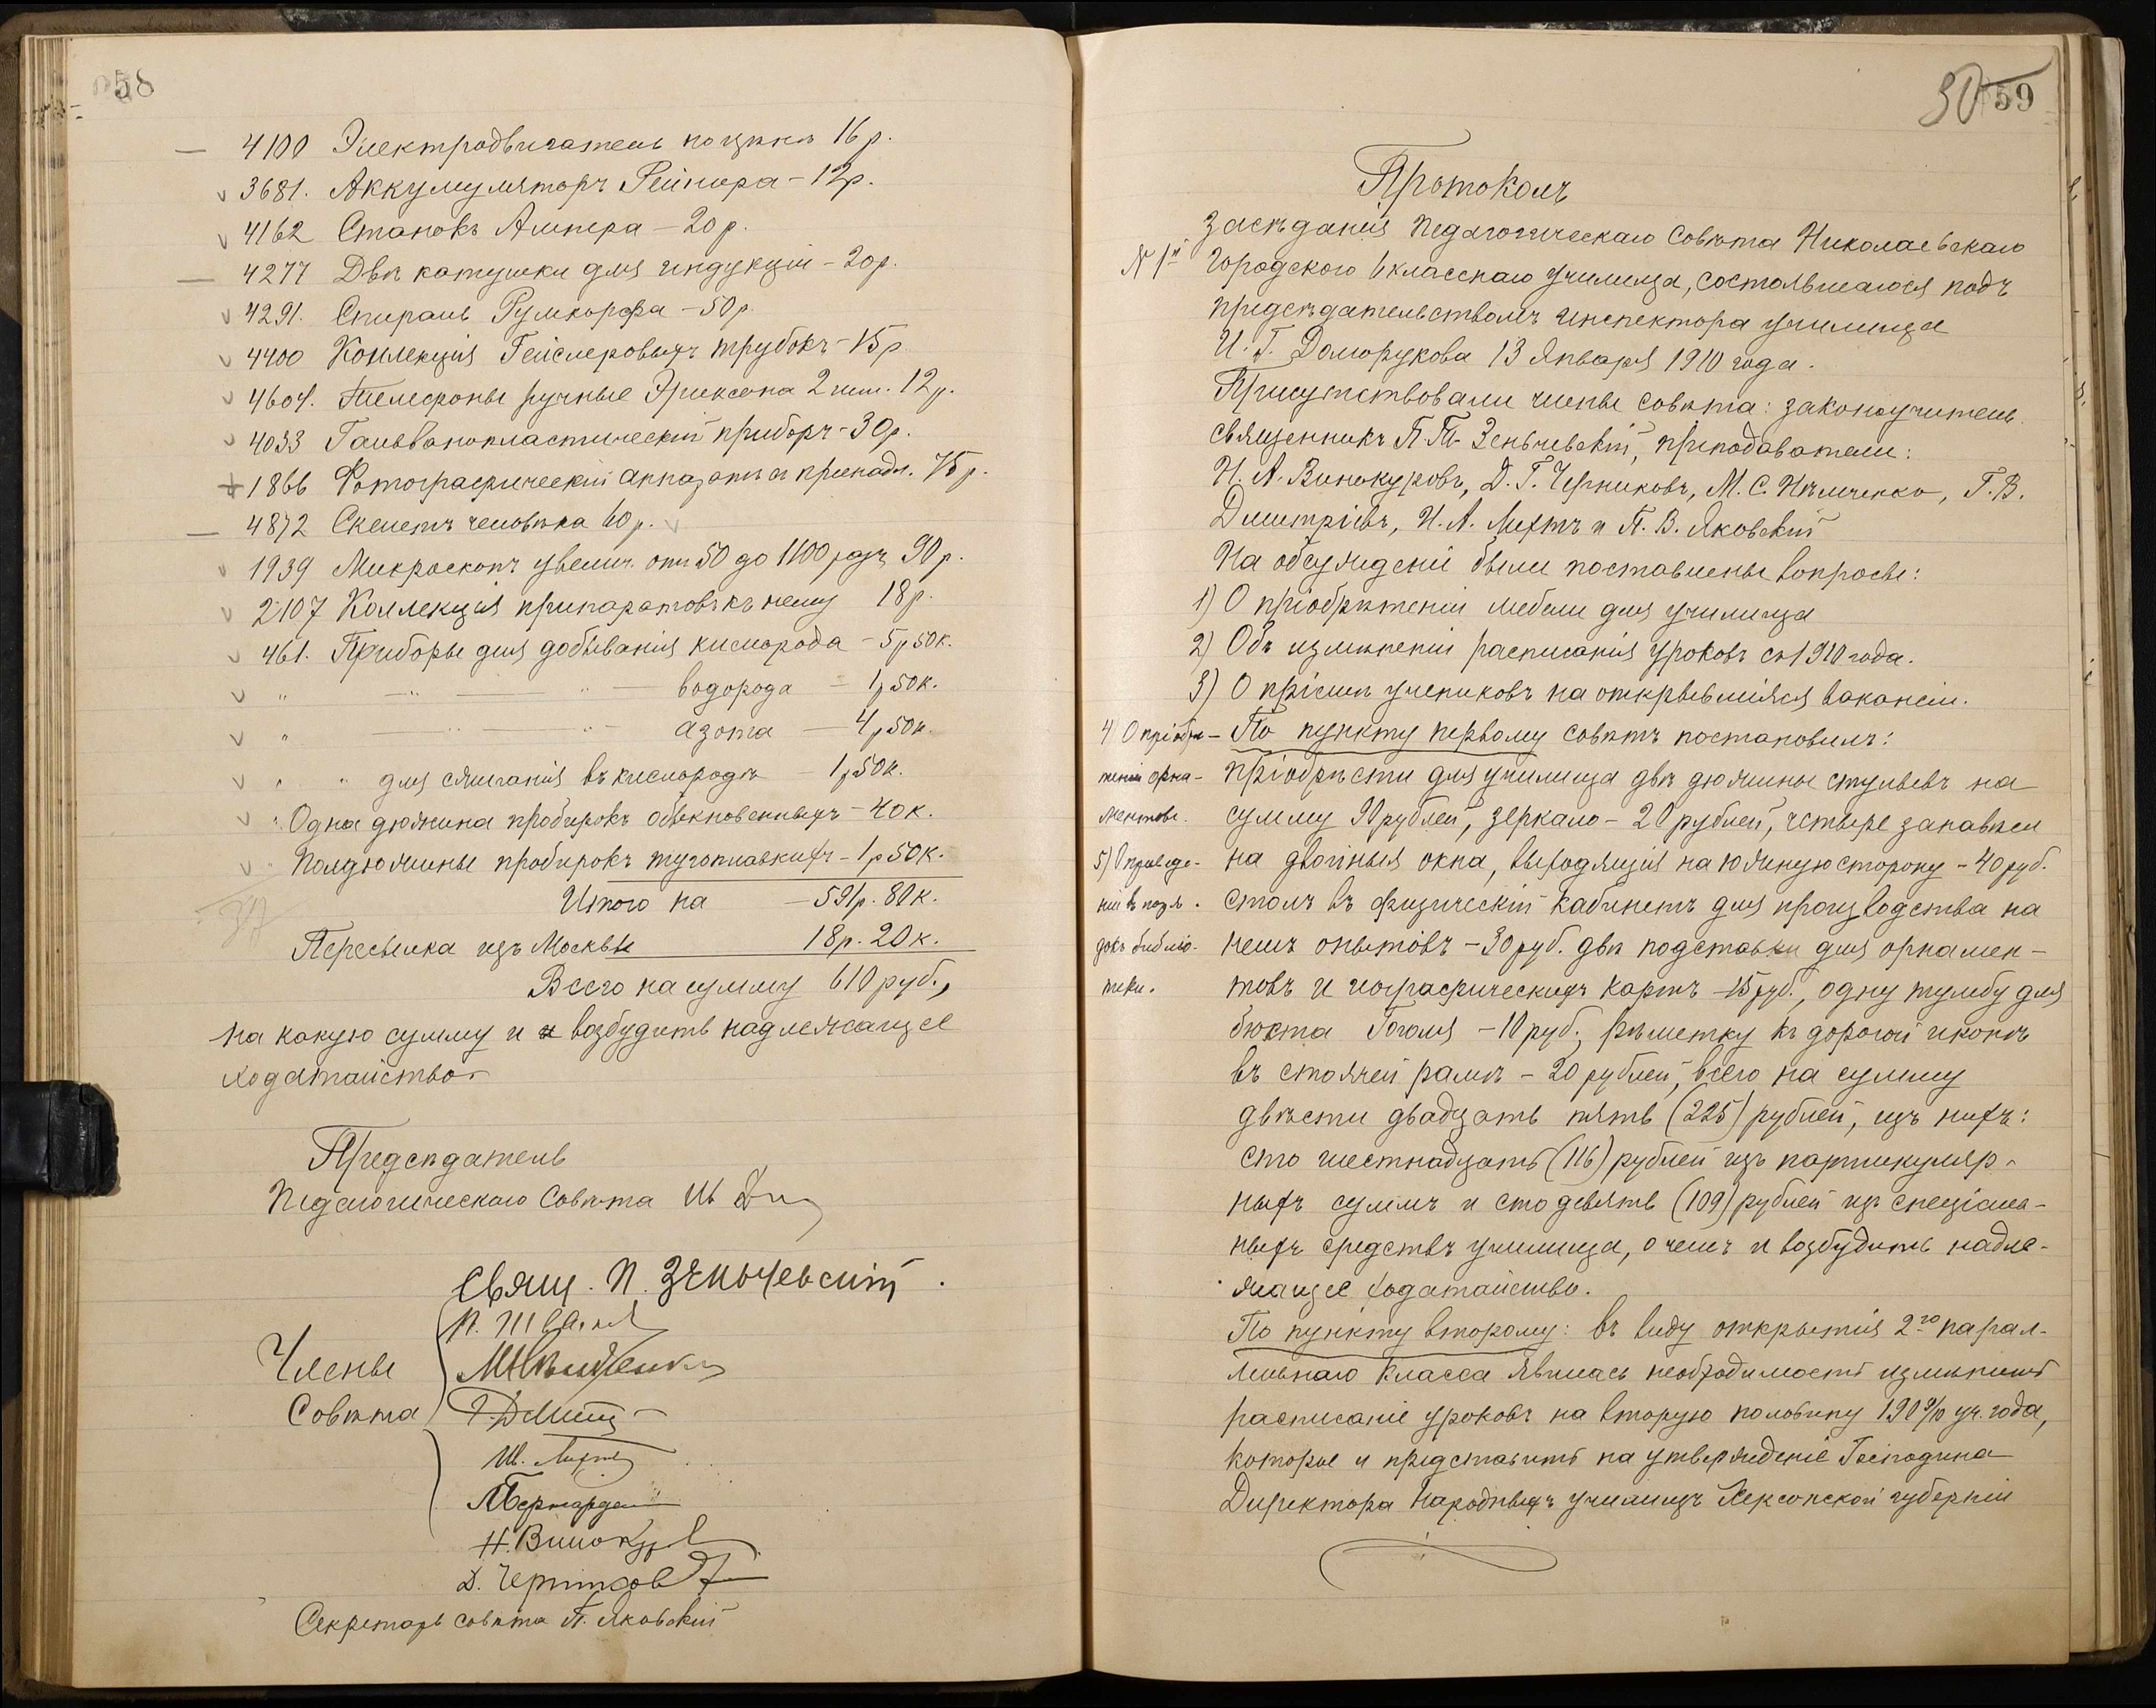 58
4100 Электродвигатель по цинк 16 р.
3681. Аккумуляторъ Рейнира - 12р.
4162 Станокъ Ампера - 20 р.
4277 Двѣ катушки для индукціи - 20р.
4291. Спираль Румкорфа - 50 р.
4400 Коллекція Гейслеровыхъ трубокъ - 15 р.
4604. Телефоны ручные Эриксона 2 шт. 12 р.
4033 Гальванопластическій приборъ - 30р.
1866 Фотографическій аппаратъ съ принадл. 75 р.
4872 Скелетъ человѣка 60 р.
1939 Микроскопъ увелич. отъ 50 до 1100 разъ 90 р.
2107 Коллекція препаратовъ къ нему 18 р.
461. Приборы для добыванія кислорода - 5 р 50к.
" — " — водорода - 1 р 50к.
" — " — азота — 4 р 50к.
" " для сжиганія въ кислородѣ - 1 р 50к.
" Одна дюжина пробирокъ обыкновенныхъ - 40 к.
" Полдюжины пробирокъ тугоплавкихъ - 1 р 50к.
Итого на — 591р. 80к.
Пересылка изъ Москвы 18р. 20к.
Всего на сумму 610 руб.,
на какую сумму и возбудить надлежащее
ходатайство.
Предсѣдатель
Педагогическаго Совѣта
Свящ. П. Зеньчевскій.
Члены
Совѣта
Н. Винокуров
Д. Черников
Секретарь совѣта П. Яковскій
59
Протоколъ
засѣданія Педагогическаго Совѣта Николаевскаго
№ 1й Городского 6 класснаго училища, состоявшагося подъ
предсѣдательствомъ инспектора училища
И. Г. Долгорукова 13 Января 1910 года.
Присутствовали члены совѣта: законоучитель
священникъ П. Т. Зеньчевскій, преподаватели:
Н. А. Винокуровъ, Д. Г. Черниковъ, М. С. Ильченко, Г. В.
Дмитріевъ, И. А. Лихтъ и П. В. Яковскій
На обсужденіи были поставлены вопросы:
1) О пріобрѣтеніи мебели для училища
2) Объ измѣненіи расписанія уроковъ съ 1910 года.
3) О пріемѣ учениковъ на открывшіяся вакансіи.
4) О пріобрѣ-
теніи орна-
ментовъ.
5) О приведе-
ніи въ поря-
докъ библіо-
теки.
По пункту первому совѣтъ постановилъ:
пріобрѣсти для училища двѣ дюжины стульевъ на
сумму 90 рублей, зеркало - 20 рублей, четыре занавѣси
на двойныя окна, выходящія на южную сторону - 40 руб.
столъ въ физическій кабинетъ для производства на
немъ опытовъ - 30 руб. двѣ подставки для орнамен-
товъ и географическихъ картъ - 15 руб., одну тумбу для
бюста Гоголя - 10 руб., рѣшетку къ дорогой иконѣ
въ стоячей рамѣ - 20 рублей, всего на сумму
двѣсти двадцать пять (225) рублей, изъ нихъ:
сто шестнадцать (116) рублей изъ партикуляр-
ныхъ суммъ и сто девять (109) рублей изъ спеціаль-
ныхъ средствъ училища, о чемъ и возбудить надле-
жащее ходатайство.
По пункту второму: въ виду открытія 2го парал-
лельнаго класса явилась необходимость измѣнить
расписаніе уроковъ на вторую половину 1909/10 уч. года,
которое и представить на утвержденіе Господина
Директора Народныхъ училищъ Херсонской губерніи